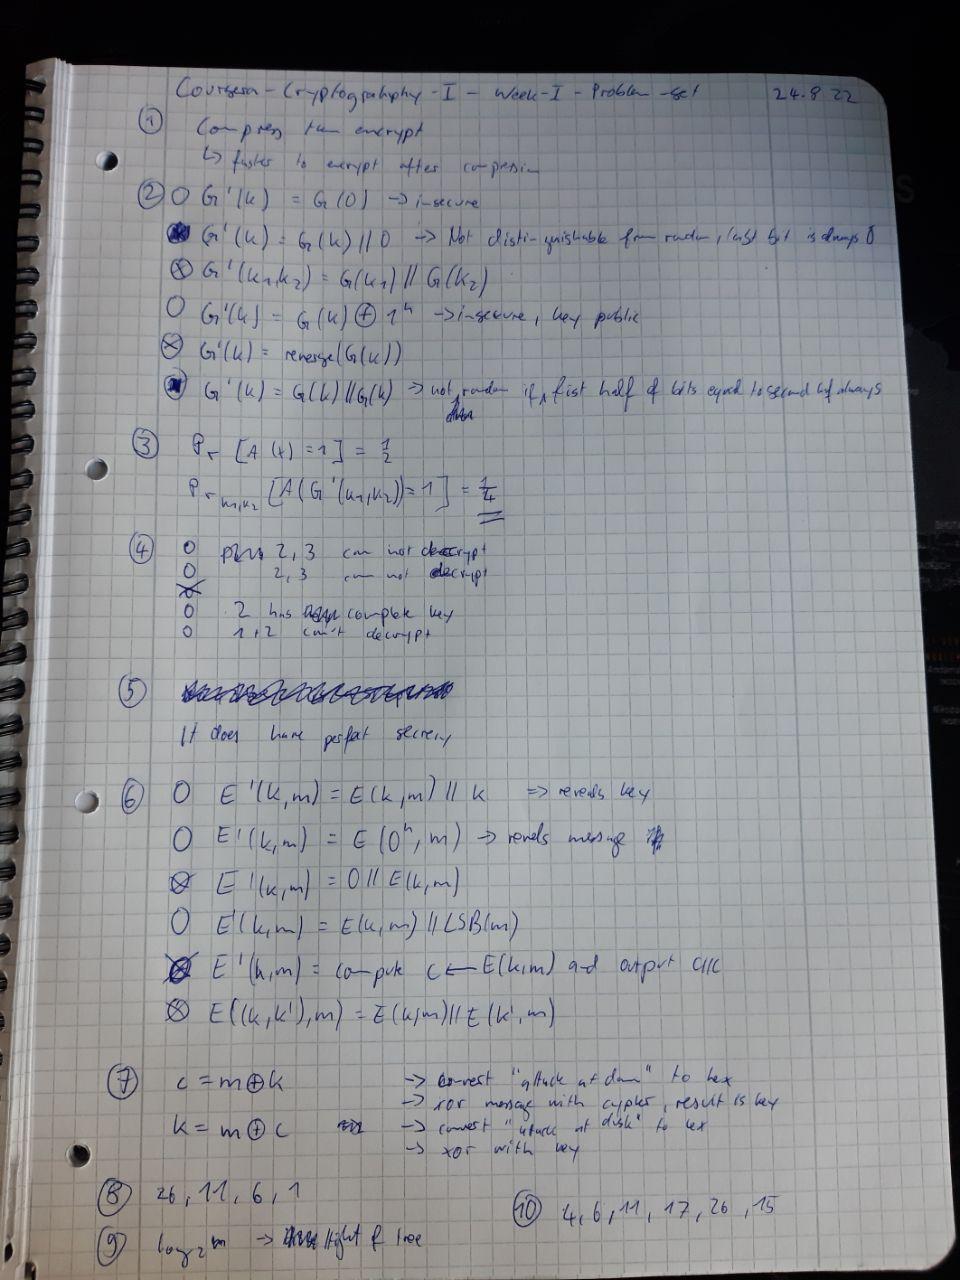 Coursera - Cryptography - I - Week - I - Problem - set 24.8.22
① Compress then encrypt
↳ faster to encrypt after compression
② O G'(k) = G(0) → insecure
G'(k) = G(k) // 0 → Not distinguishable from random, last bit is always 0
⊗ G'(k1,k2) = G(k1) // G(k2)
O G'(k) = G(k) ⊕ 1ⁿ → insecure, key public
⊗ G'(k) = reverse(G(k))
G'(k) = G(k) // G(k) → not random if first half of bits equal to second half always
③ Pr [A(r) = 1] = 1/2
Pr k1,k2 [A(G'(k1,k2)) = 1] = 1/4
④ O 2, 3 can not decrypt
O 2, 3 can not decrypt
O 2 has complete key
O 1, 2 can't decrypt
⑤
It does have perfect secrecy
⑥ O E'(k,m) = E(k,m) // k => reveals key
O E'(k,m) = E(0ⁿ, m) → reveals message
⊗ E'(k,m) = 0 // E(k,m)
O E'(k,m) = E(k,m) // LSB(m)
⊗ E'(k,m) = compute c ← E(k,m) and output c//c
⊗ E((k,k'),m) = E(k,m) // E(k',m)
⑦ c = m ⊕ k → convert "attack at dawn" to hex
→ xor message with cypher, result is key
k = m ⊕ c → convert "attack at disk" to hex
→ xor with key
⑧ 26, 11, 6, 1
⑩ 4, 6, 11, 17, 26, 15
⑨ log₂ⁿ → hight of tree